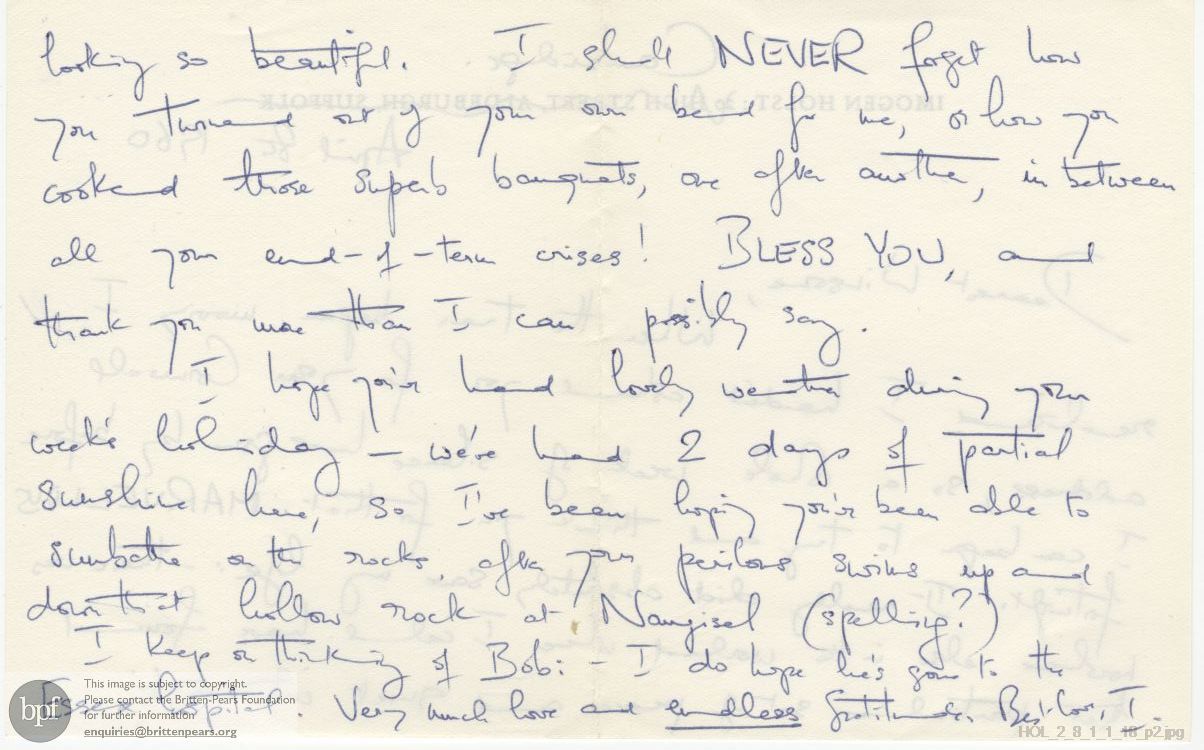 looking so beautiful. I shall NEVER forget how
you turned out of your own bed for me, or how you
cooked those superb banquets, one after another, in between
all your end-of-term crises! BLESS YOU, and
thank you more than I can possibly say.
I hope you've had lovely weather during your
week's holiday – we've had 2 days of partial
sunshine here, so I've been hoping you've been able to
sunbathe on the rocks, after your perilous swims up and
down that hollow rock at Nangisel (spelling?)
I keep on thinking of Bob: – I do hope he's gone to the
Essex hospital. Very much love and endless gratitude. Best love, I.
IMOGEN HOLST: 9 HIGH STREET, ALDEBURGH, SUFFOLK
April 1960
bpf
This image is subject to copyright.
Please contact the Britten-Pears Foundation
for further information
enquiries@brittenpears.org
HOL_2_8_1_1_18_p2.jpg